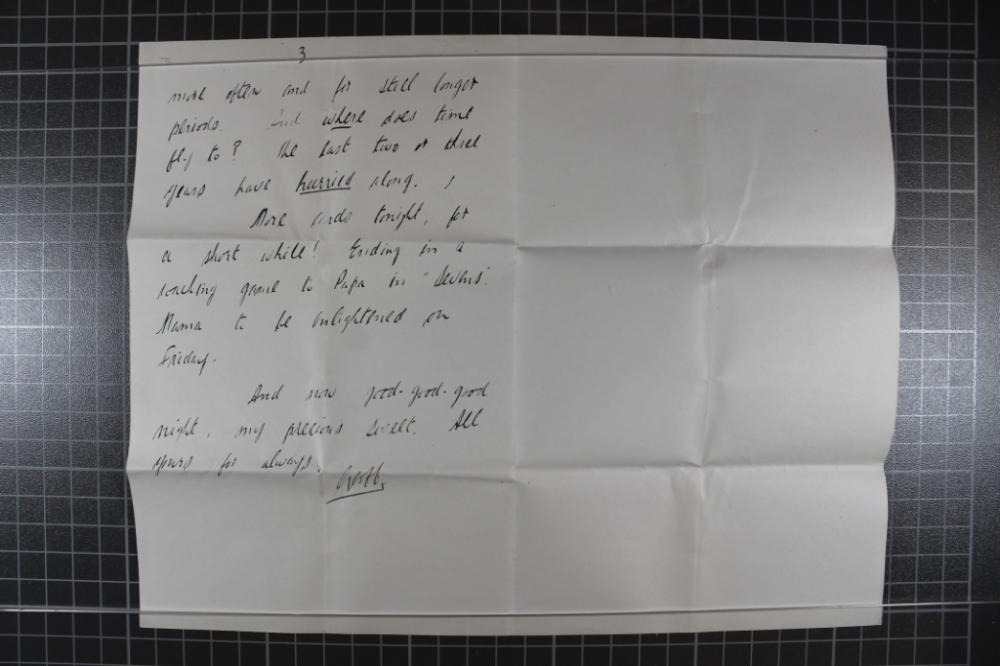 3
more often and for still longer
periods. And where does time
fly to? The last two or three
years have hurried along.
More cards tonight, for
a short while! Ending in a
coaching game to Papa in "Sevens".
Mama to be enlightened on
Friday.
And now good-good-good
night, my precious sweet. All
yours for always,